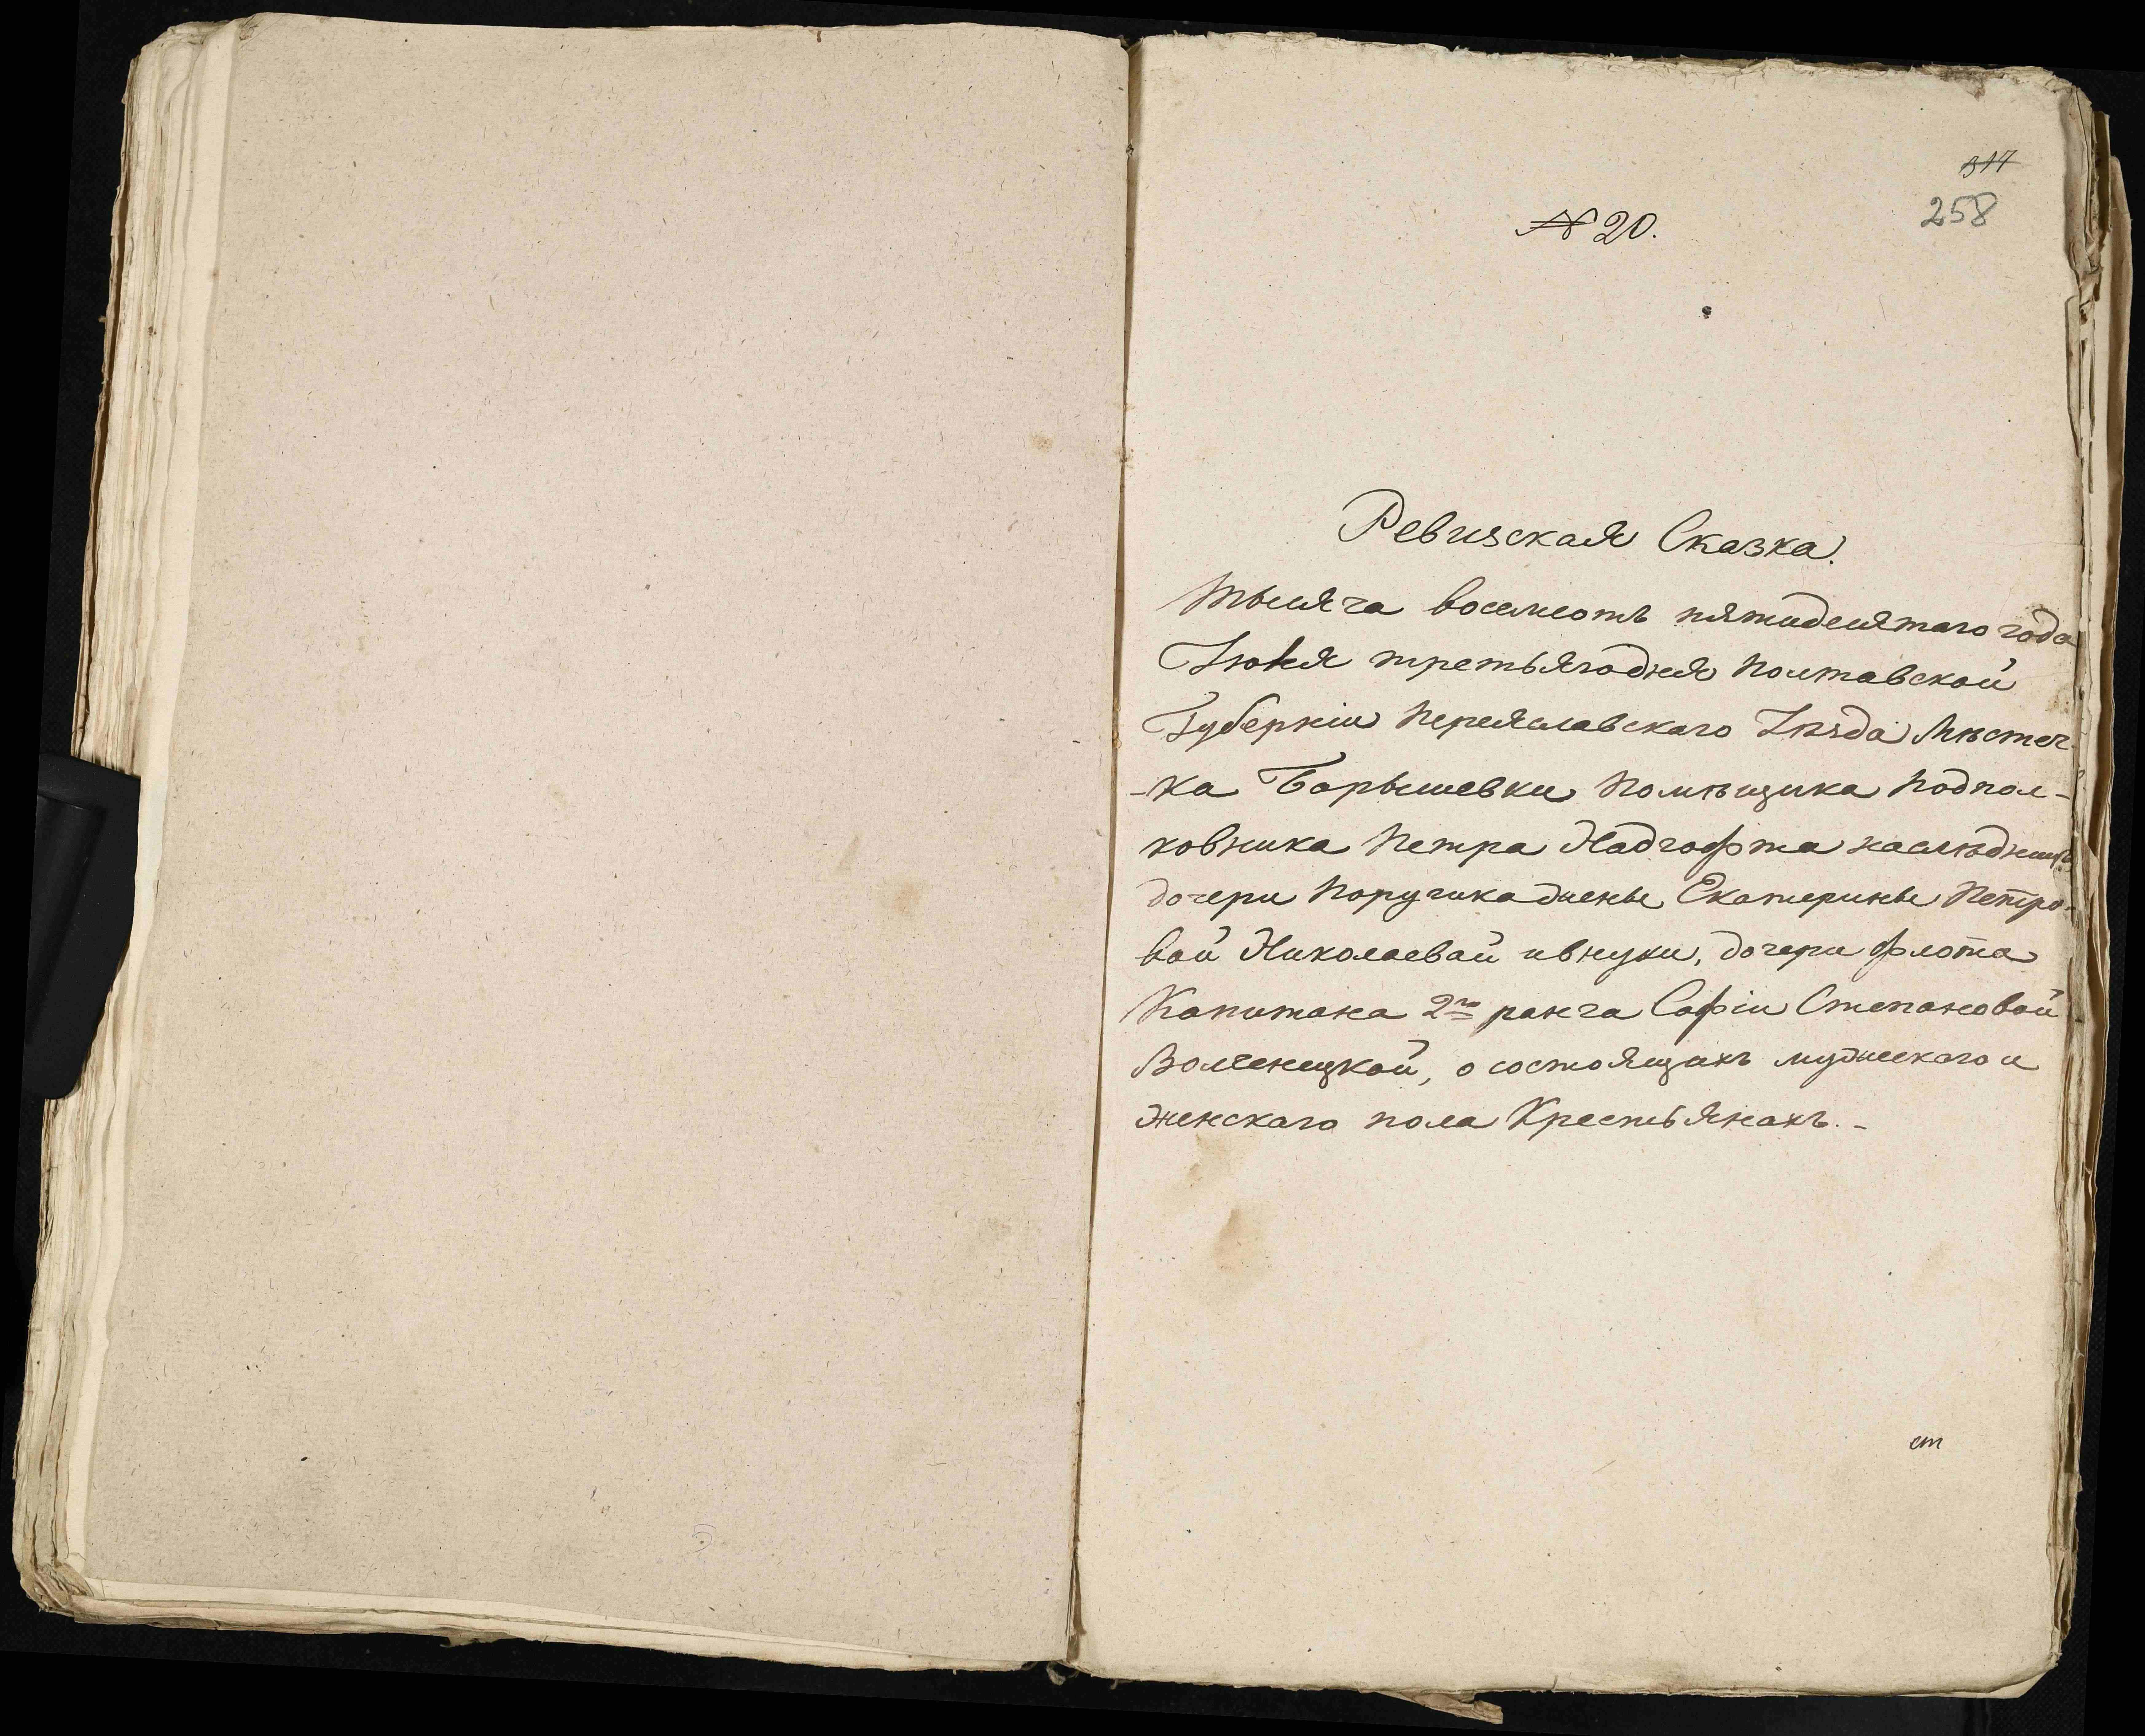 317
258
№ 20.
Ревизская Сказка.
Тысяча восемсотъ пятидесятаго года
Іюня третьягодня Полтавской
Губерніи Переяславскаго Уѣзда Мѣстеч-
-ка Барышевки Помѣщика Подпол-
ковника Петра
дочери Поручика жены Екатерины Петро-
вой Николаевой ивнуки, дочери флота
Капитана 2го ранга Софіи Степановой
о состоящихъ мужескаго и
женскаго пола Крестьянахъ. -
ст